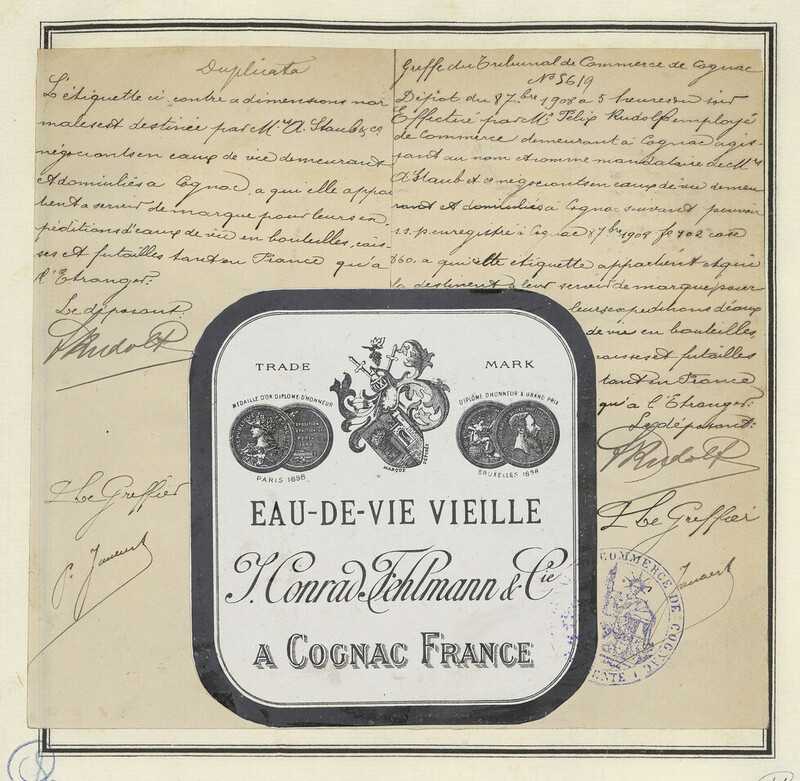 Duplicata
L'étiquette ci contre a dimensions nor
males est destinée par Mrs A. Staub & Co
négociants en eaux de vie demeurant
et domiciliés à Cognac, a qui elle appar
tient a servir de marque pour leurs ex
péditions d'eaux de vie en bouteilles, cais-
ses et futailles tant en France qu'à
l'Etranger.
Le déposant:
Rudolf
Le Greffier
Greffe du Tribunal de Commerce de Cognac
No 5619
Dépôt du 8 7bre 1908 a 5 heures du soir
Effectué par Mr Félix Rudolf employé
de Commerce demeurant à Cognac agis-
sant au nom et comme mandataire de Mrs
A Staub et Co négociants en eaux de vie demeu
rant et domiciliés à Cognac suivant pouvoir
s.s.p. enregistré à Cognac 8 7bre 1908 fo 102 case
860, a qui cette étiquette appartient et qui
la destinent a leur servir de marque pour
leurs expéditions d'eaux
de vie en bouteilles,
caisses et futailles
tant en France
qu'a l'Etranger.
Le déposant:
Rudolf
Le Greffier
TRADE MARK
MÉDAILLE D'OR DIPLÔME D'HONNEUR
PARIS 1898
MARQUE DÉPOSÉE
DIPLÔME D'HONNEUR & GRAND PRIX
BRUXELLES 1898
EAU-DE-VIE VIEILLE
J. Conrad Fehlmann & Cie
A COGNAC FRANCE
COMMERCE DE COGNAC